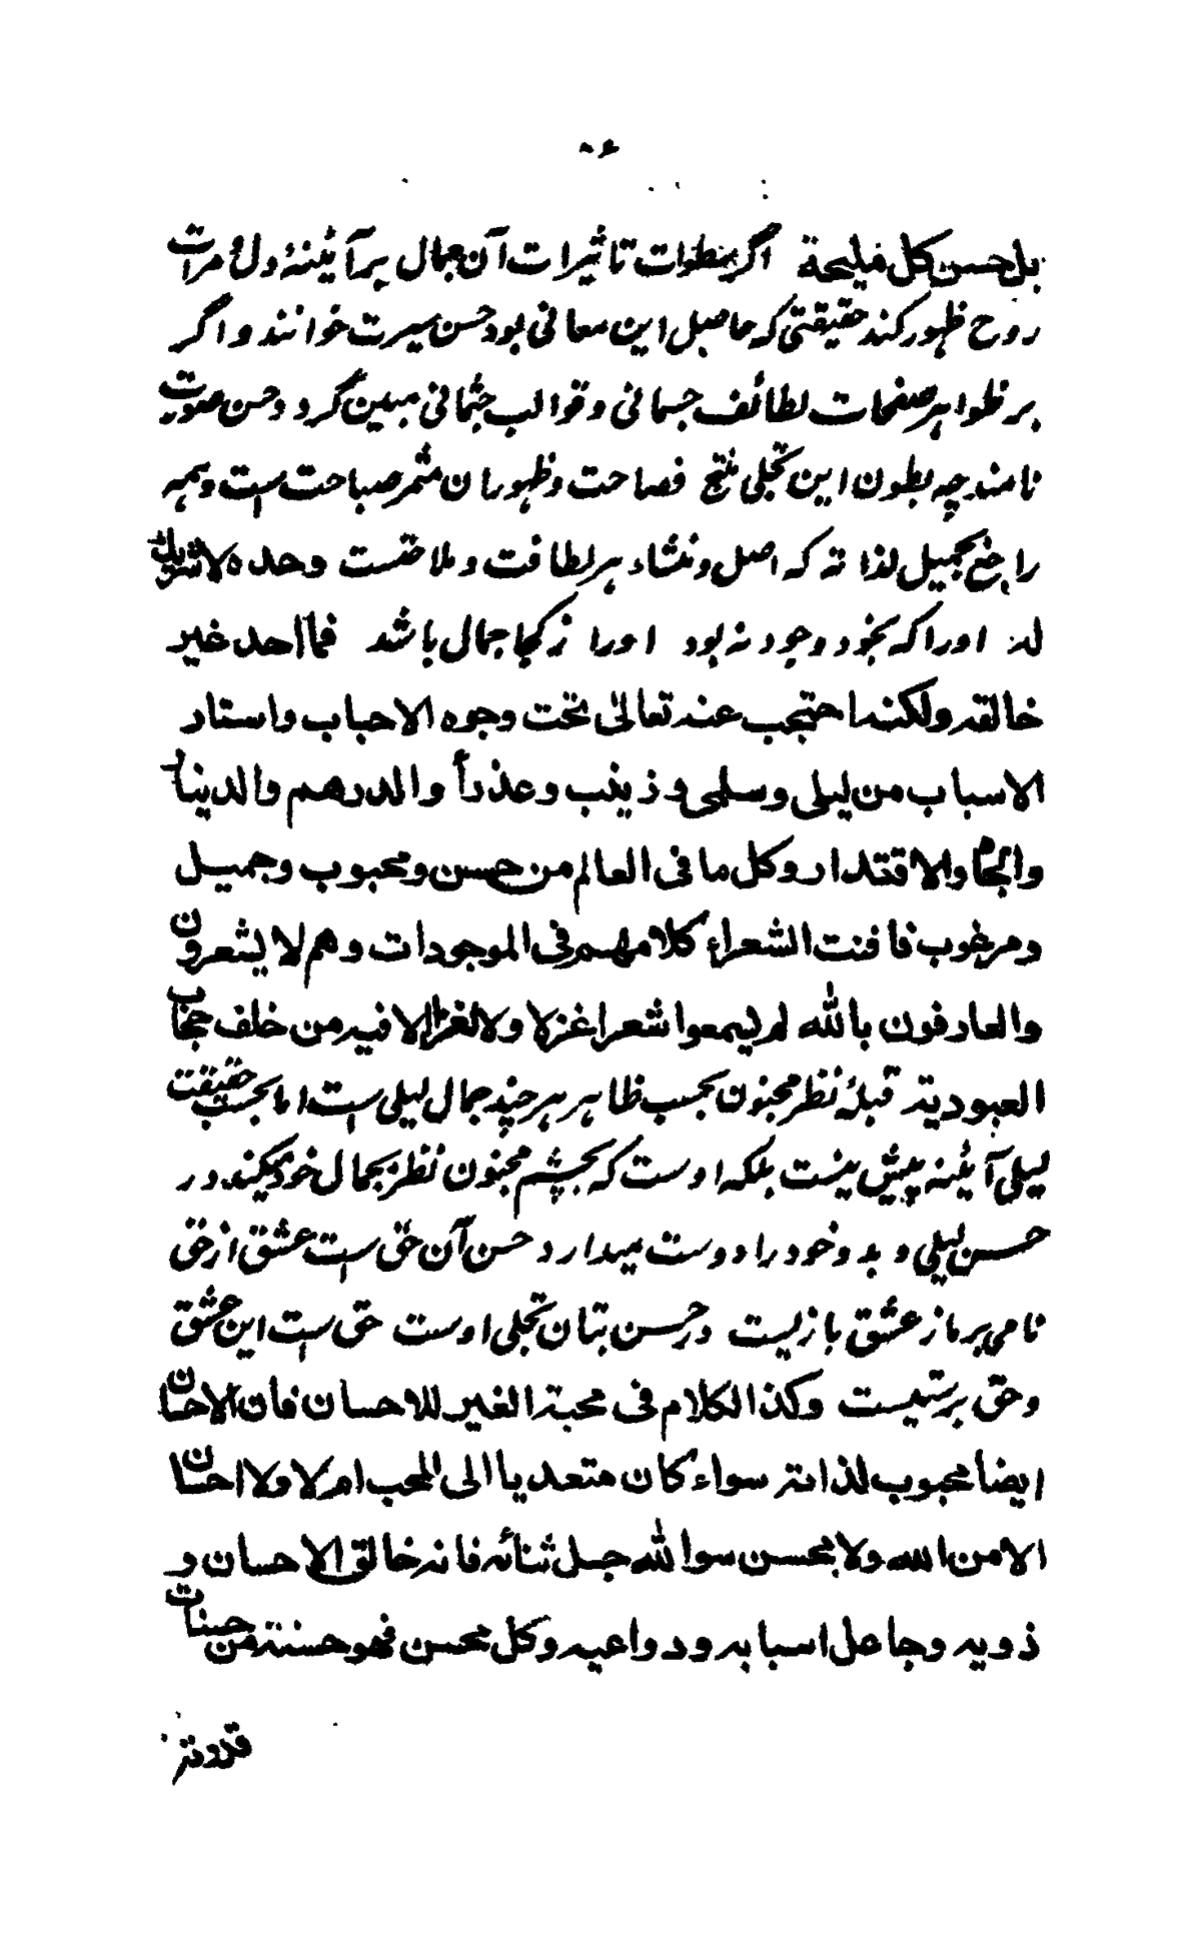 بل حسن كل مليحة اگر سطوات تاثیرات آن جمال بر آئینۂ دل و مرات
روح ظهور کند حقیقتی که حاصل این معانی بود حسن سیرت خوانند و اگر
بر ظواهر صفحات لطائف جسمانی و قوالب جثمانی مبین گردد حسن صورت
نامند چه بطون این تجلی منتج فصاحت و ظهور ان مثمر صباحت ست و همه
راجع بجمیل لذاته که اصل و منشاء هر لطافت و ملاحتست وحده لا شریك
له اورا که بخود وجود نه بود اورا ز کجا جمال باشد فما احد غیر
خالقه ولكنه احتجب عنه تعالیٰ تحت وجوه الاحباب واستار
الاسباب من لیلی وسلمی و زینب وعذرأ والدرهم والدینار
والجاه والاقتدار وكل ما فی العالم من حسن ومحبوب وجمیل
ومرغوب فافنت الشعراء كلامهم فی الموجودات وهم لا یشعرون
والعارفون بالله لم یسمعوا شعرا غزلا ولا لغزا الا فیه من خلف حجاب
العبودیة قبلۂ نظر مجنون بحسب ظاهر هر چند جمال لیلی ست اما بحسب حقیقت
لیلی آئینه بیش نیست بلکه اوست که بچشم مجنون نظر بجمال خود میکند در
حسن لیلی و بدو خود را دوست میدارد حسن آن حق ست عشق از حق
نامی بر ما ز عشق بازیست در حسن بتان تجلی اوست حق ست این عشق
و حق پرستیست وكذا الكلام فی محبة الغیر للاحسان فان الاحسان
ایضا محبوب لذاته سواء كان متعدیا الی المحب ام لا ولا احسان
الا من الله ولا محسن سوا لله جل ثنائه فانه خالق الاحسان و
ذویه وجاعل اسبابه ودواعیه وكل محسن فهو حسنة من حسنات
قدرته